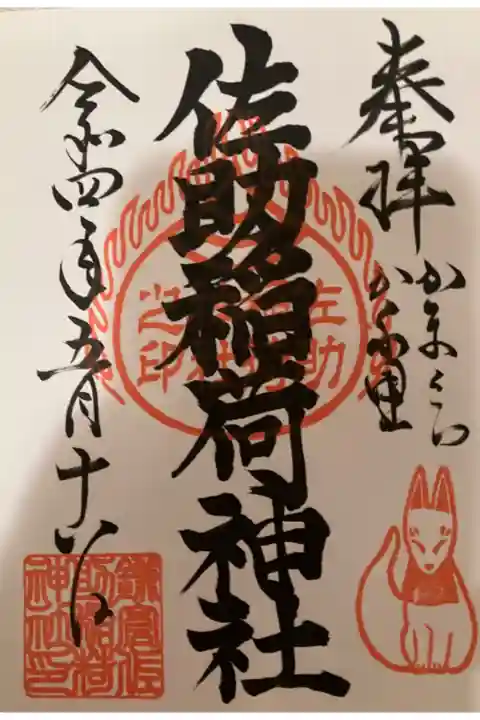 奉拝
かまくら
かくれ里
佐助稲荷神社
令和四年五月十八日
鎌倉佐
助稲荷
神社印